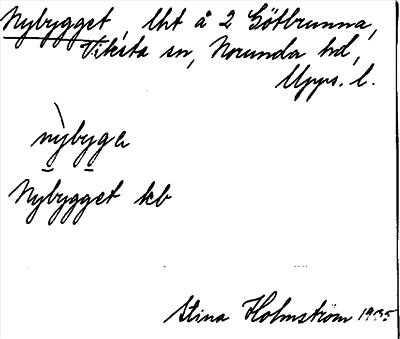 Nybygget, lht å 2 Götbrunna,
Viksta sn, Norunda hd,
Upps. l.
nỳbyga
Nybygget kb
Stina Holmström 1935